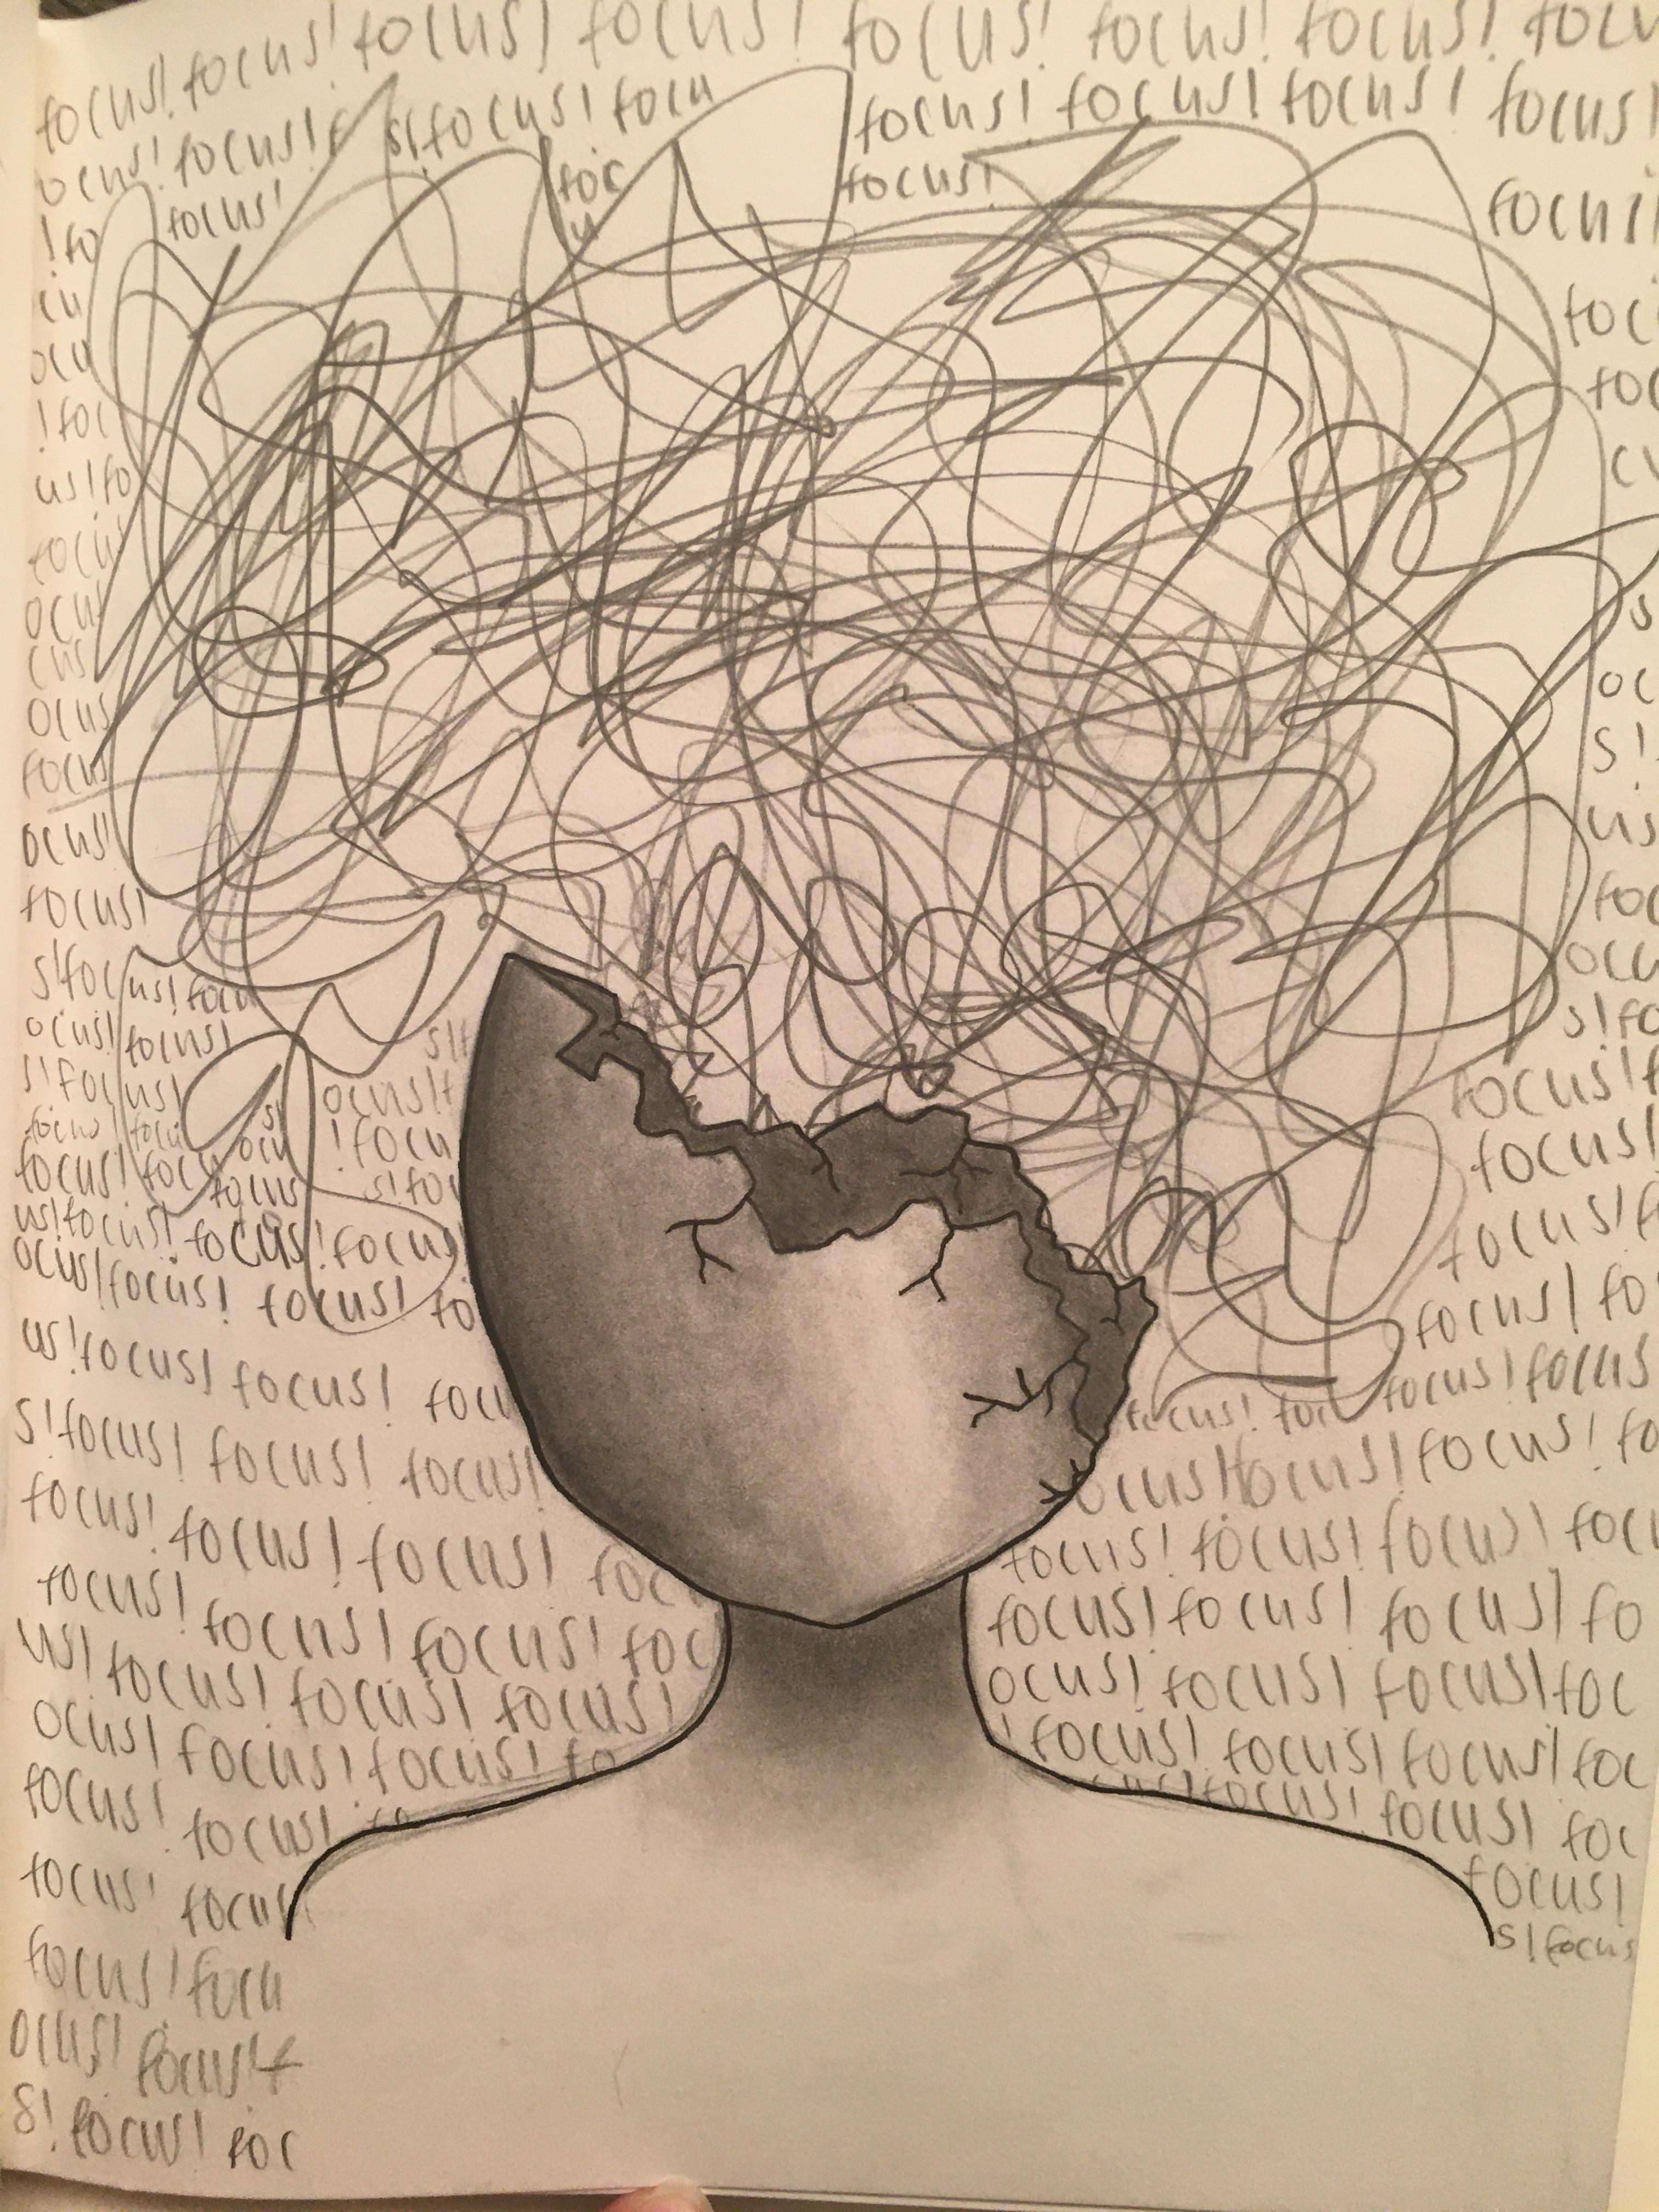 focus! focus! focus! focus! focus! focus! focus! focu
focus! focus! f s! focus! focu focus! focus! focus! focus!
ocus! focus! foc focus!
! fo u focus!
cu foc
ocu foc
! foc cu
us! fo
focus
ocus s
cus oc
ocus s!
focus us
ocus! foc
focus! ocu
s! focus! focu s! fo
ocus! focus! s! f focus! f
s! focus! ocus! f focus!
focus! focu ocu ! focu
focus! focu focus s! fo focus! f
us! focus! focus! focus focus! fo
ocus! focus! focus! fo focus! focus
us! focus! focus! focu focus! foc
s! focus! focus! focus! ocus! focus! focus! fo
focus! focus! focus! foc focus! focus! focus! foc
focus! focus! focus! foc focus! focus! focus! fo
us! focus! focus! focus! ocus! focus! focus! foc
ocus! focus! focus! fo ! focus! focus! focus! foc
focus! focus! fo cus! focus! focus! foc
focus! focus focus!
focus! focu s! focus
ocus! focus! f
s! focus! foc